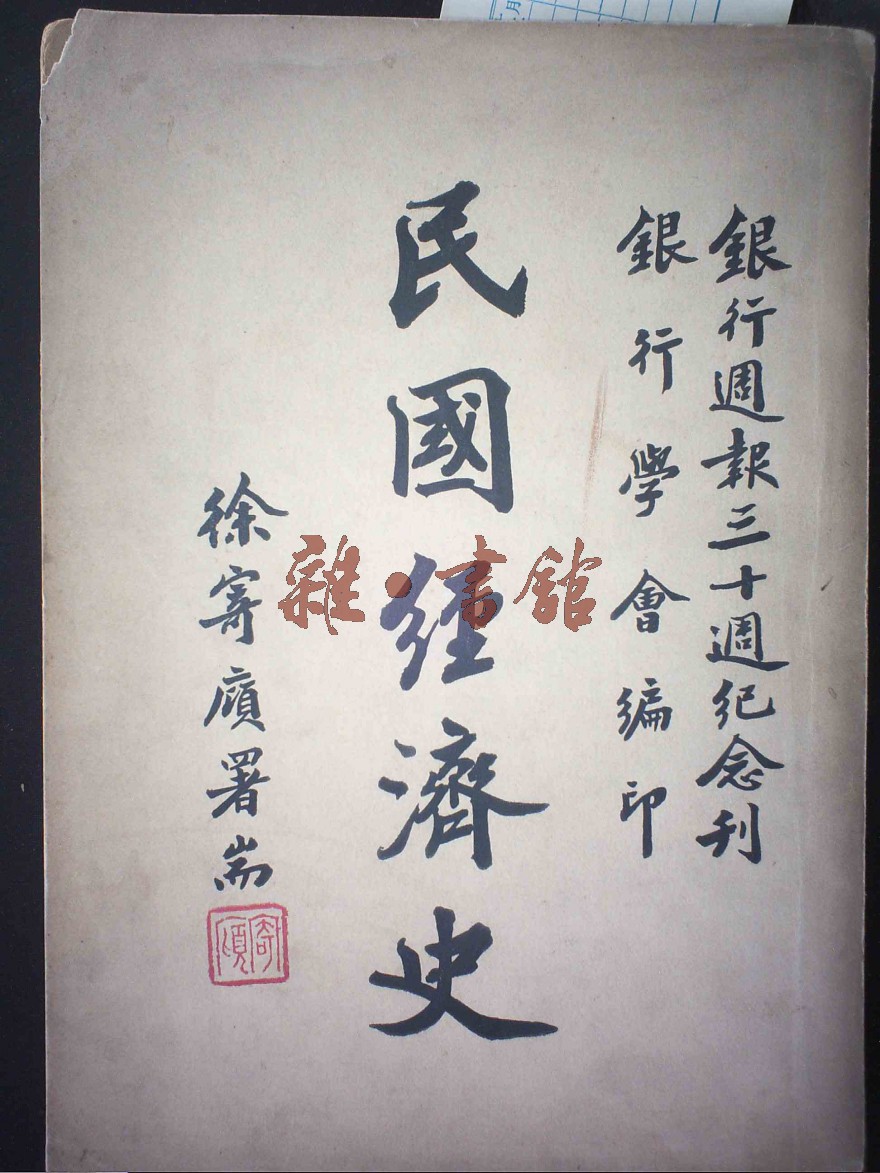 銀行週報三十週紀念刊
銀行學會編印
民國經濟史
徐寄廎署耑
寄廎
雜·書館